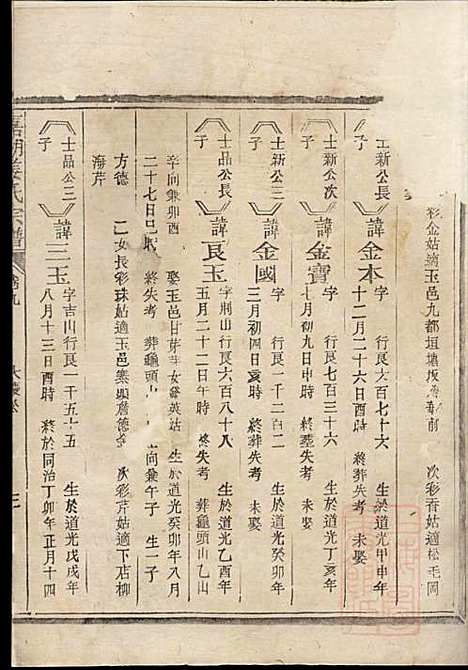 彩金姑適玉邑九都垣塘 次彩香姑適松毛岡
士新公長子 諱金本 字 行良六百七十六 生於道光甲申年
十二月二十六日酉時 終葬失考 未娶
士新公次子 諱金寶 字 行良七百三十六 生於道光丁亥年
七月初九日申時 終葬失考 未娶
士新公三子 諱金國 字 行良一千二百二 生於道光癸卯年
三月初四日亥時 終葬失考 未娶
士品公長子 諱良玉 字荆山行良六百八十八 生於道光乙酉年
五月二十二日午時 終失考 葬龜頭山乙山
辛向兼卯酉 娶玉邑甘芽 女發英姑 生於道光癸卯年八月
二十七日巳 終失考 葬龜頭 向兼午子 生一子
方德 二女長彩珠姑適玉邑寨頭詹德 次彩芹姑適下店柳
海芹
士品公三子 諱三玉 字吉山行良一千五十五 生於道光戊戌年
八月十三日酉時 終於同治丁卯年正月十四
氏宗譜 卷九 三